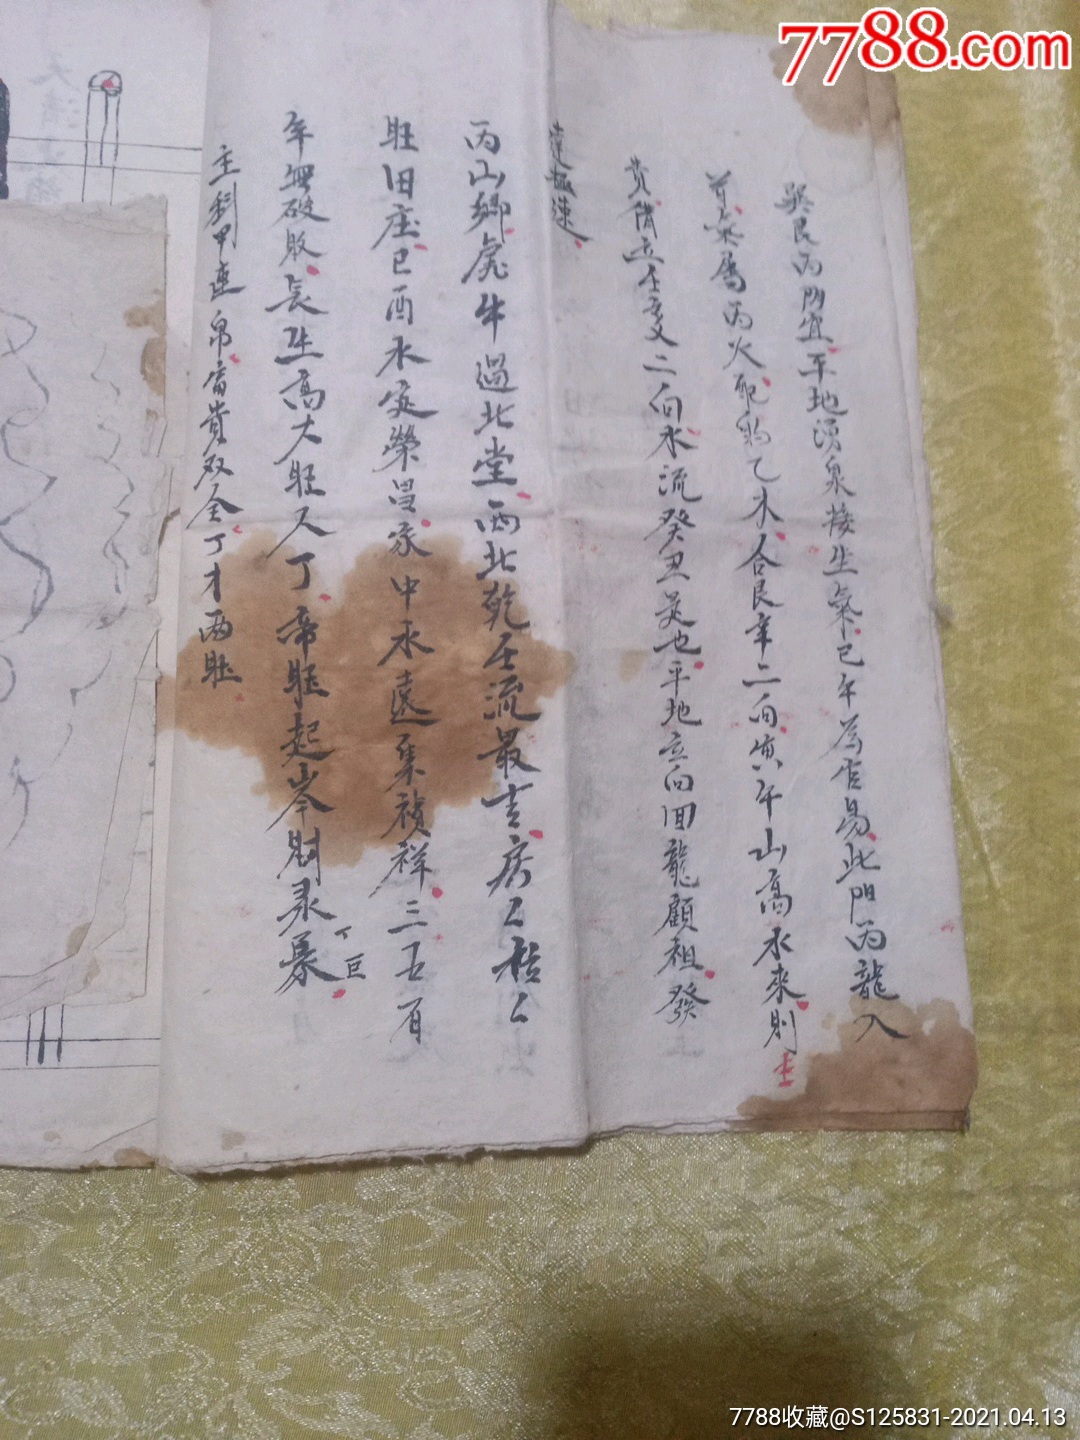 7788.com
巽艮丙門宜平地湧泉接生氣巳午為吉易此門丙龍入
首氣屬丙火配乙木合艮辛二向寅午山高水來則
主
貴倘立壬亥二向水流癸丑是也平地立向回龍顧祖發
達極速
丙山鄉庭牛過北堂西北乾壬流最吉房
旺田庄巳酉水定榮昌家中永遠集禎祥三五百
年無破敗長生高大旺人丁帝旺起峯財
丁巨
主科甲連富貴双全丁才両旺
7788收藏@S125831-2021.04.13